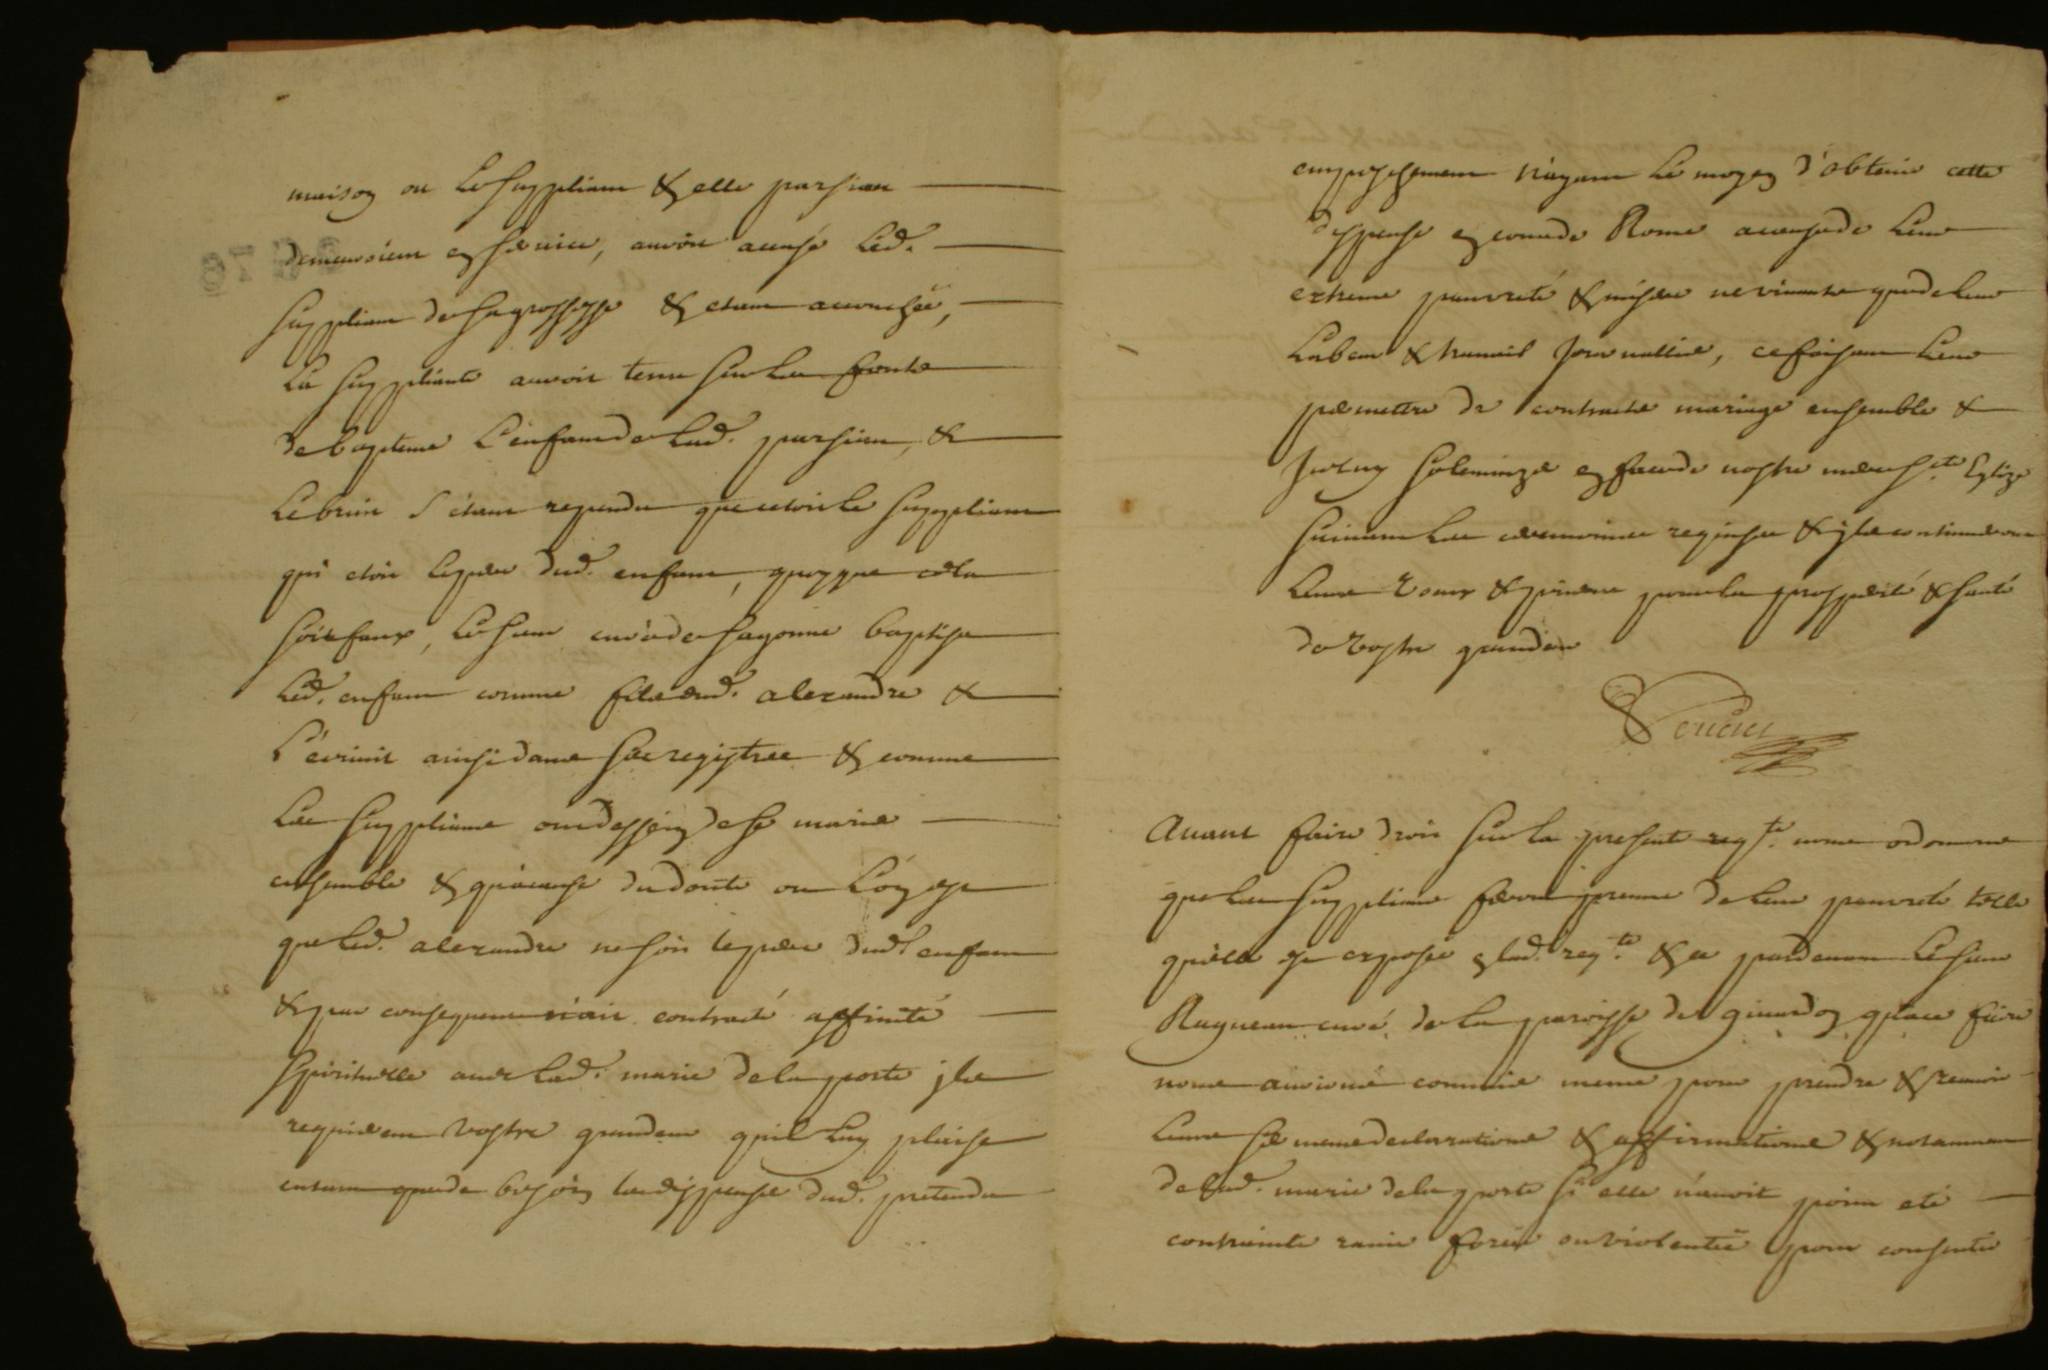 maison ou le suppliant & elle parsian
demeuroient en service, auroit accusé led.
suppliant de sa grossesse & etant accouchée,
la suppliante auroit tenu sur les fonts
de bapteme l'enfant de lad. parsian, &
le bruit s'etant rependu que cetoit le suppliant
qui etoit le pere dud. enfant, quoyque cela
soit faux, le sieur curé de baptisa
led. enfant comme fils dud. alexandre &
l'ecrivit ainsi dans ses registres & comme
les supplians ont dessein de se marier
ensemble & qu'a cause du doute ou l'on est
que led. alexandre ne soit le pere dud. enfant
& par consequent n'ait contracté affinité
spirituelle avec lad. marie delaporte ils
requierent vostre grandeur qu'il luy plaise
entant que de besoin les dispenser dud. pretendu
empeschement n'ayant le moyen d'obtenir cette
dispense en cour de Rome a cause de leur
extreme pauvreté & misere ne vivants que de leur
labeur & travail journallier, ce faisant leur
permettre de contracter mariage ensemble &
iceluy solemnizer en face de nostre mere ste. Eglize
suivant les ceremonies requises & ils continueront
leurs voeux & prieres pour la prosperité & santé
de vostre grandeur
avant faire droit sur la presente reqte. nous ordonnons
que les supplians feront preuve de leur pauvreté telle
qu'elle est exposée en lad. reqte. & ce pardevant le sieur
Ragueau curé de la paroisse de que a ce faire
nous avons commis meme pour prendre & recevoir
leurs serments declarations & affirmations & notamment
de lad. marie delaporte si elle n'auroit point eté
contrainte ravie forcée ou violentée pour consentir